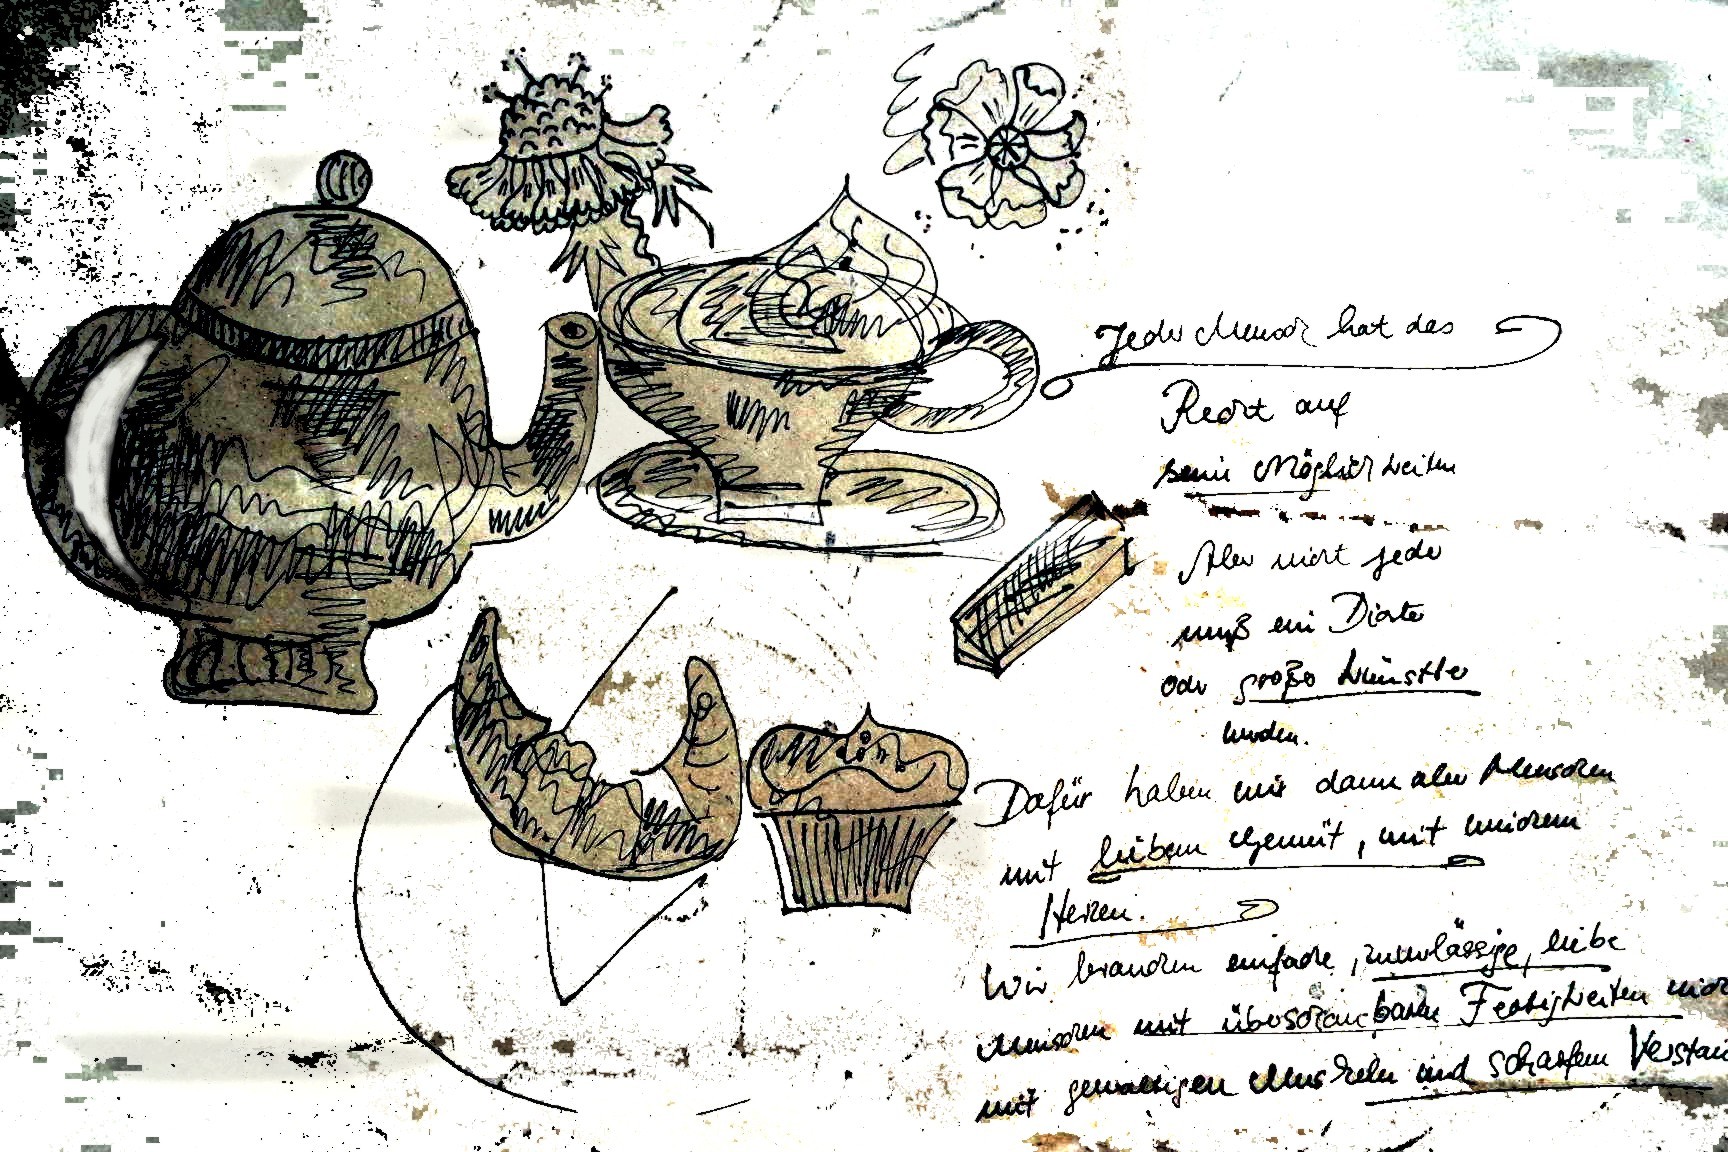 Jeder Mensch hat das
Recht auf
seine Möglichkeiten
Aber nicht jeder
muß ein Dichter
oder großer Künstler
werden.
Dafür haben wir dann aber Menschen
mit liebem Gemüt, mit reichem
Herzen.
Wir brauchen einfache, zuverlässige, liebe
Menschen mit überschaubaren Fertigkeiten
mit gewaltigen Muskeln und scharfem Verstan